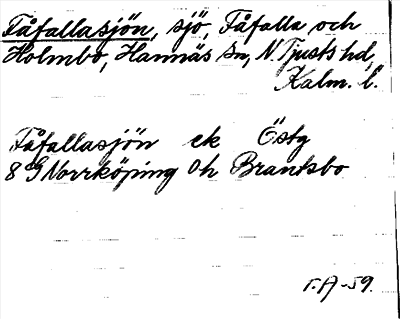 Fåfallasjön, sjö, Fåfalla och
Holmbo, Hannäs sn, N Tjusts hd,
Kalm. l.
Fåfallasjön ek Östg
8 G Norrköping 0h Brantsbo
T.A-59.